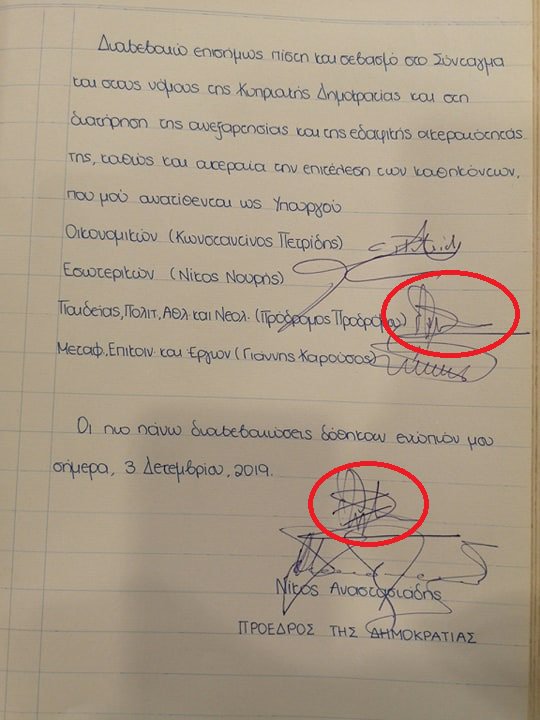 Διαβεβαιώ επισήμως πίστη και σεβασμό στο Σύνταγμα
και στους νόμους της Κυπριακής Δημοκρατίας και στη
διατήρηση της ανεξαρτησίας και της εδαφικής ακεραιότητάς
της, καθώς και ακεραία την επιτέλεση των καθηκόντων,
που μού ανατίθενται ως Υπουργού
Οικονομικών (Κωνσταντίνος Πετρίδης)
Εσωτερικών (Νίκος Νουρής)
Παιδείας, Πολιτ, Αθλ. και Νεολ. (Πρόδρομος Προδρόμου)
Μεταφ, Επικοιν. και Έργων (Γιάννης Καρούσος)
Οι πιο πάνω διαβεβαιώσεις δόθηκαν ενώπιόν μου
σήμερα, 3 Δεκεμβρίου, 2019.
Νίκος Αναστασιάδης
ΠΡΟΕΔΡΟΣ ΤΗΣ ΔΗΜΟΚΡΑΤΙΑΣ